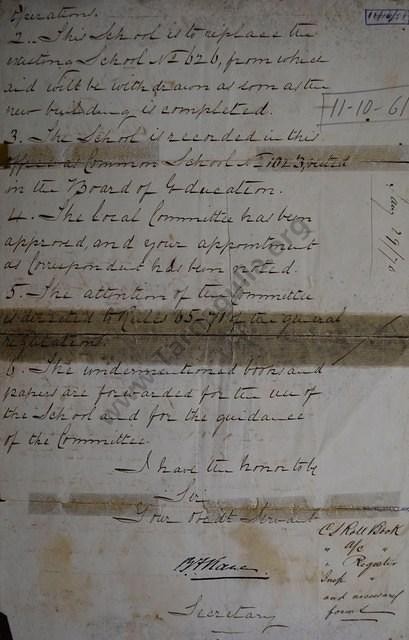 Operations.
2. This School is to replace the
existing School No 626, from which
aid will be withdrawn as soon as the
new building is completed.
3. The School is recorded in this
office as Common School No 1023, vested
in the Board of Education.
4. The Local Committee has been
approved, and your appointment
as Correspondent has been noted.
5. The attention of the Committee
is directed to Rules 65-71 of the general
regulations.
6. The undermentioned books and
papers are forwarded for the use of
the School and for the guidance
of the Committee
I have the honor to be
Sir
Your Obedt Servant
Secretary
C S Roll Book
" a/c "
" Register
Insp "
and necessary
forms
11-10-61
www.Tarnagulla.org